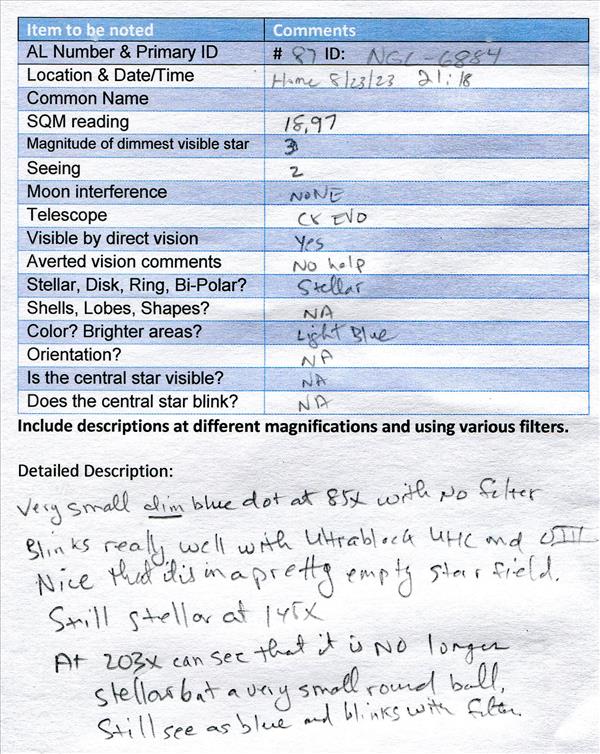 Item to be noted Comments
AL Number & Primary ID # 87 ID: NGC-6884
Location & Date/Time Home 8/23/23 21:18
Common Name
SQM reading 18.97
Magnitude of dimmest visible star 3
Seeing 2
Moon interference NONE
Telescope CX EVO
Visible by direct vision Yes
Averted vision comments No help
Stellar, Disk, Ring, Bi-Polar? Stellar
Shells, Lobes, Shapes? NA
Color? Brighter areas? Light Blue
Orientation? NA
Is the central star visible? NA
Does the central star blink? NA
Include descriptions at different magnifications and using various filters.
Detailed Description:
Very small dim blue dot at 85x with No filter
Blinks really well with Ultrablock UHC and OIII
Nice that it is in a pretty empty star field.
Still stellar at 145x
At 203x can see that it is NO longer
stellar but a very small round ball.
Still see as blue and blinks with filter.